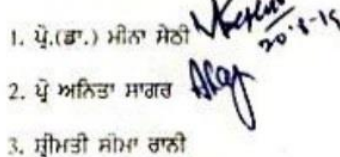 1. ਪ੍ਰੋ.(ਡਾ.) ਮੀਨਾ ਸੇਠੀ
20.8.15
2. ਪ੍ਰੋ ਅਨਿਤਾ ਸਾਗਰ
3. ਸ਼੍ਰੀਮਤੀ ਸੀਮਾ ਰਾਨੀ